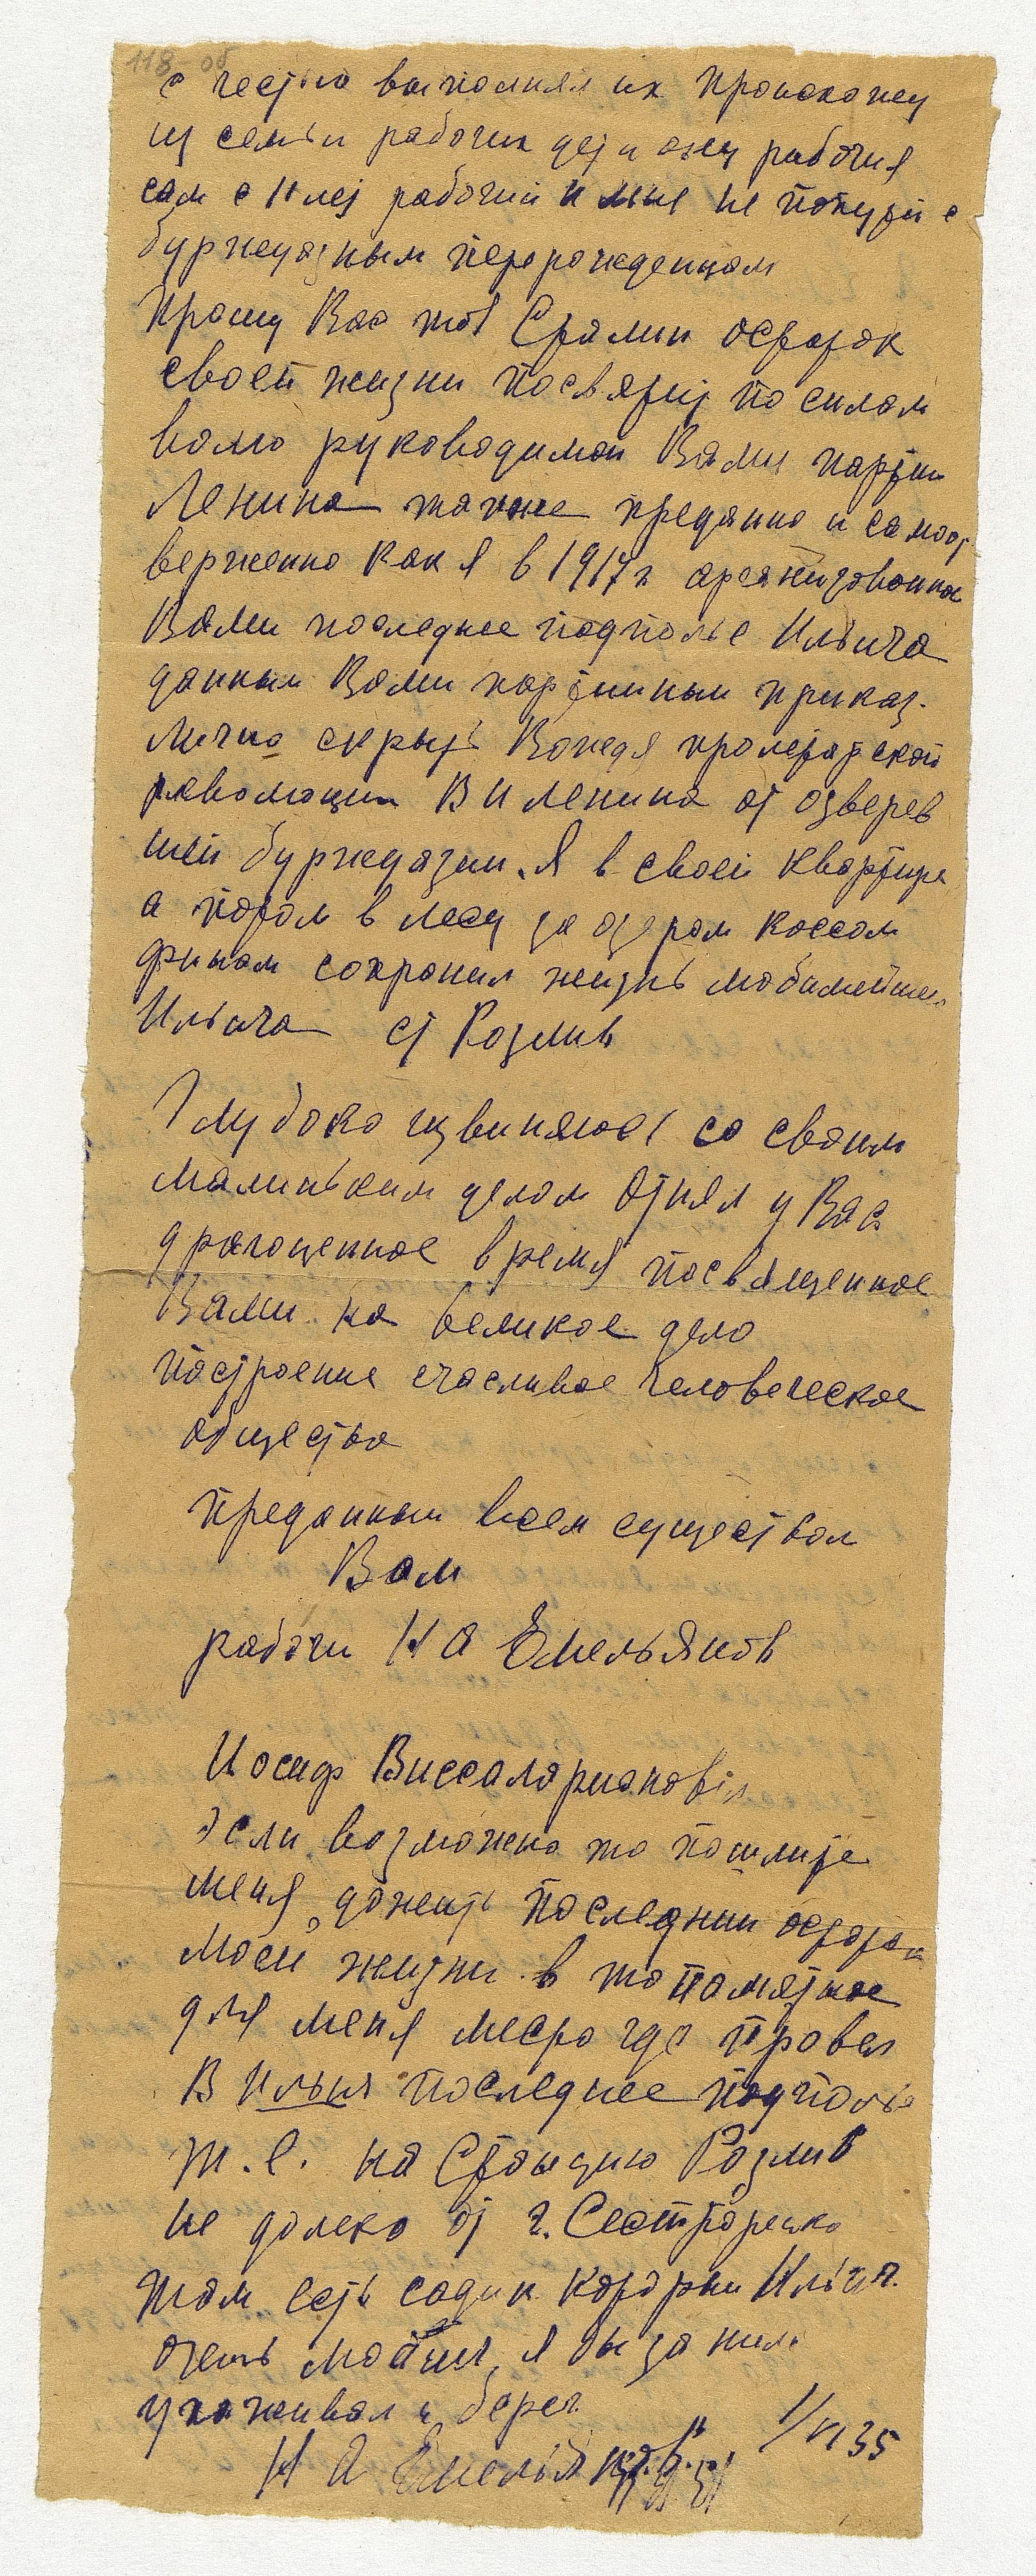 118 об
с честью выполнял их происхожу
из семьи рабочих дети рабочия
сам с 11 лет рабочий и мне не попути с
буржуазным перерожденцам
Прошу Вас тов Сталин остаток
своей жизни посвятить по силам
руководимой Вами партии
Ленина также преданно и самоот
верженно как я в 1917 г организованное
Вами последнее подполье Ильича
данным Вами партийным приказ.
Лично скрыть Вождя пролетарской
революции В И Ленина от озверев
шей буржуазии. Я в своей квартире
а потом в лесу за озером коссом
финам сохронил жизнь любимейшего
Ильича ст Розлив
Глубоко извиняюсь со своим
малиньким делом отнял у Вас
драгоценное время посвященное
Вами на великое дело
построение счасливое человеческое
общества
преданный всем существом
Вам
рабочи Н А Емельянов
Иосиф Виссаларианович
если возможно то пошлите
меня дожить последний остаток
моей жизни в то памятное
для меня место где провел
В Ильич последнее подполье
т. е. на Станцию Розлив
не далеко от г. Сестрорецка
там есть садик который Ильич
очень любил, я бы за ним
ухаживал и берег
Н А Емельянов 1/VI 35